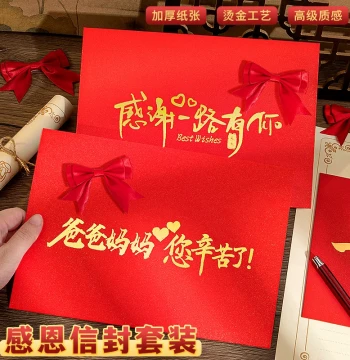 加厚纸张 烫金工艺 高级质感
感谢一路有你
Best Wishes
爸爸妈妈您辛苦了!
感恩信封套装